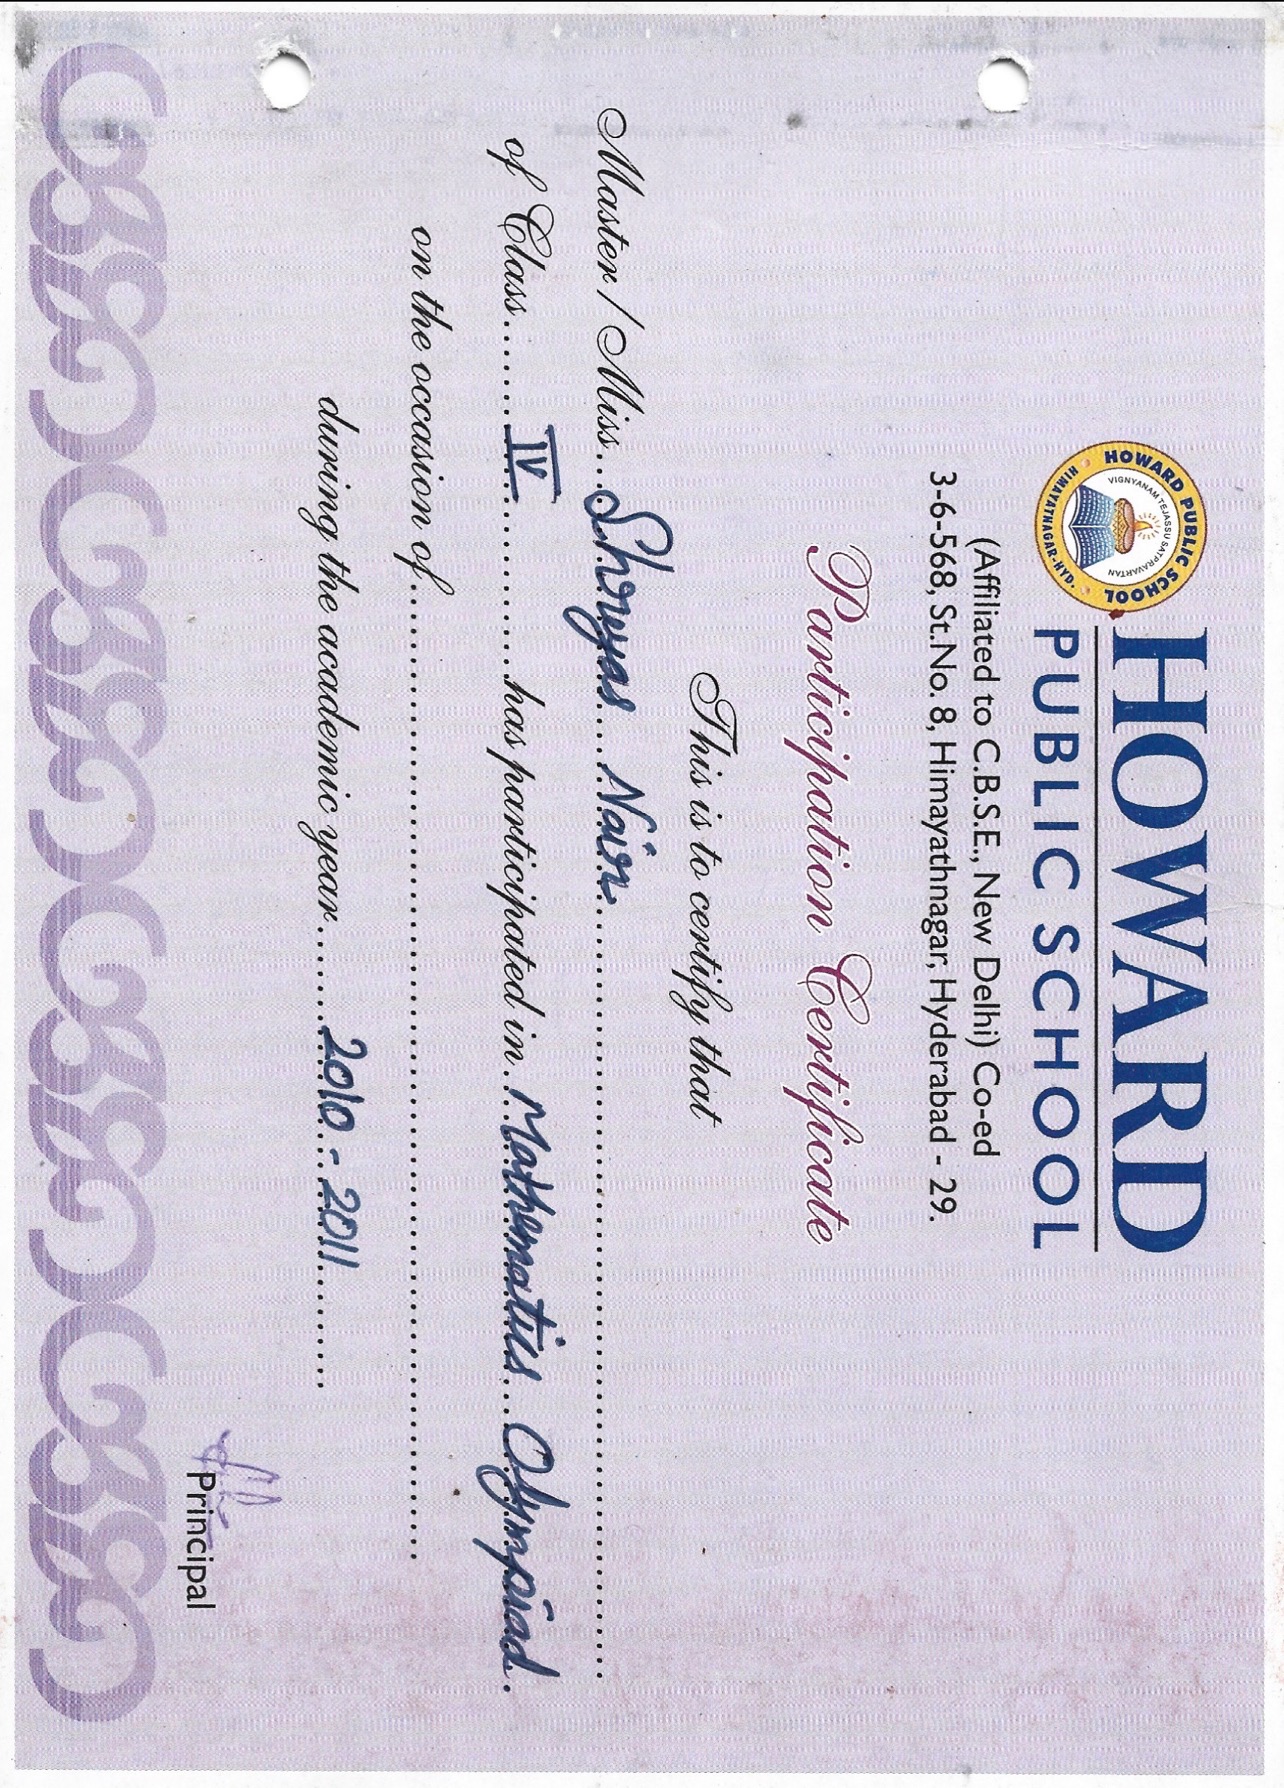 HOWARD PUBLIC SCHOOL
VIGNYANAM TEJASSU SATPRAVARTAN
HIMAYATNAGAR-HYD.
HOWARD
PUBLIC SCHOOL
(Affiliated to C.B.S.E., New Delhi) Co-ed
3-6-568, St.No. 8, Himayathnagar, Hyderabad - 29.
Participation Certificate
This is to certify that
Master / Miss Shreyas Nair
of Class IV has participated in Mathematics Olympiad.
on the occasion of
during the academic year 2010 - 2011
Principal